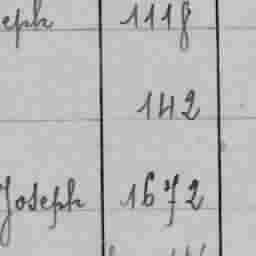 eph 1118
142
Joseph 1672